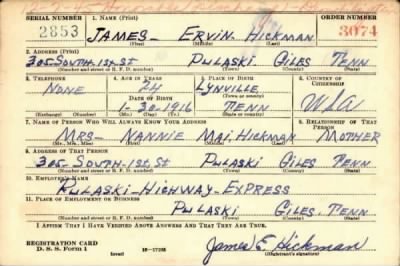 SERIAL NUMBER 1. NAME (Print) ORDER NUMBER
2853 JAMES ERVIN HICKMAN 3074
(First) (Middle) (Last)
2. ADDRESS (Print)
305 SOUTH-1ST ST PULASKI GILES TENN
(Number and street or R. F. D. number) (Town) (County) (State)
3. TELEPHONE 4. AGE IN YEARS 5. PLACE OF BIRTH 6. COUNTRY OF CITIZENSHIP
NONE 24 LYNVILLE
DATE OF BIRTH (Town or county)
1-30-1916 TENN USA
(Exchange) (Number) (Mo.) (Day) (Yr.) (State or country)
7. NAME OF PERSON WHO WILL ALWAYS KNOW YOUR ADDRESS 8. RELATIONSHIP OF THAT PERSON
MRS- NANNIE MAI HICKMAN MOTHER
(Mr., Mrs., Miss) (First) (Middle) (Last)
9. ADDRESS OF THAT PERSON
305-SOUTH-1ST ST PULASKI GILES TENN
(Number and street or R. F. D. number) (Town) (County) (State)
10. EMPLOYER'S NAME
PULASKI-HIGHWAY-EXPRESS
11. PLACE OF EMPLOYMENT OR BUSINESS
PULASKI GILES, TENN
(Number and street or R. F. D. number) (Town) (County) (State)
I AFFIRM THAT I HAVE VERIFIED ABOVE ANSWERS AND THAT THEY ARE TRUE.
REGISTRATION CARD
D. S. S. Form 1 (over) James E. Hickman
(Registrant's signature)